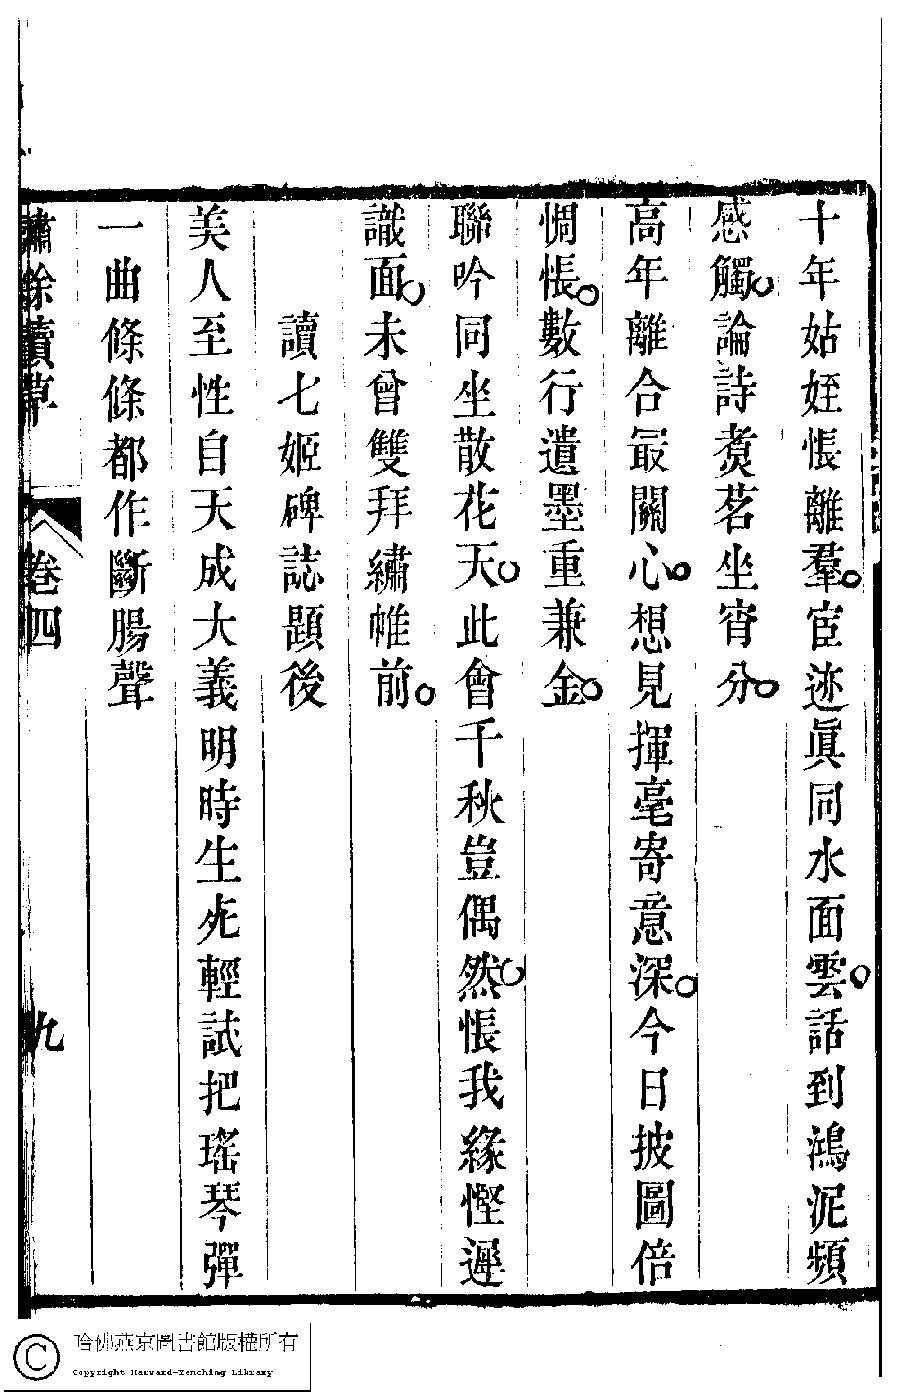 十年姑姪悵離羣宦迹眞同水面雲話到鴻泥頻
感觸論詩煑茗坐宵分
高年離合最關心想見揮毫寄意深今日披圖倍
惆悵數行遺墨重兼金
聯吟同坐散花天此會千秋豈偶然悵我緣慳遲
識面未曾雙拜繡帷前
讀七姬碑誌題後
美人至性自天成大義明時生死輕試把瑤琴彈
一曲條條都作斷腸聲
餘續草
卷四
九
哈佛燕京圖書館版權所有
Copyright Harvard-Yenching Library